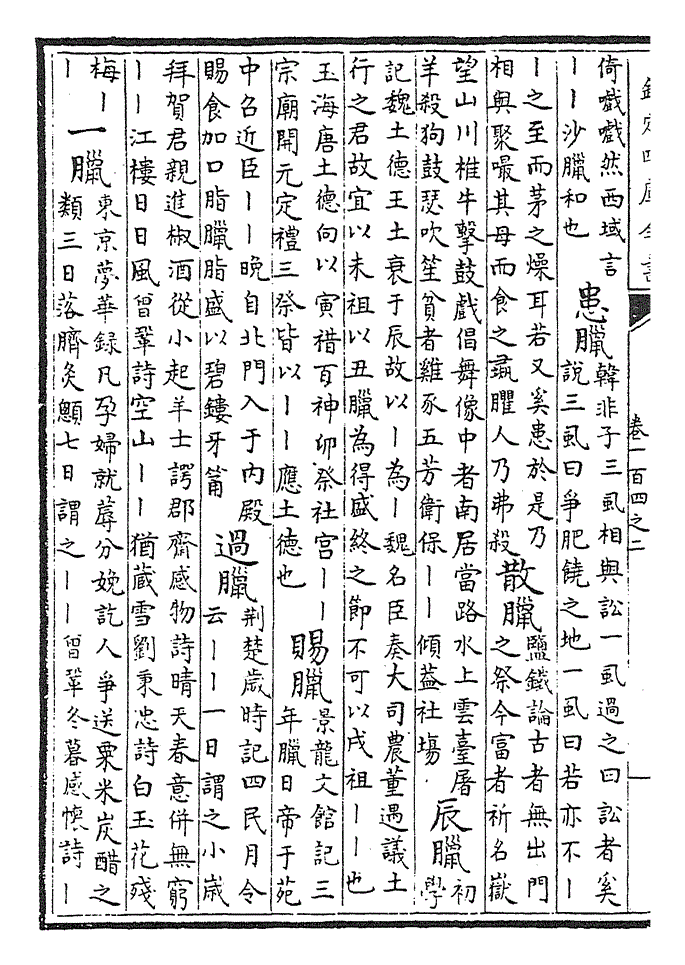 欽定四庫全書
卷一百四之二
倚戲戲然西域言
｜｜沙臘和也
患臘
韓非子三虱相與訟一虱過之曰訟者奚
説三虱曰爭肥饒之地一虱曰若亦不｜
｜之至而茅之燥耳若又奚患於是乃
相與聚嘬其母而食之彘臞人乃弗殺
散臘
鹽鐵論古者無出門
之祭今富者祈名嶽
望山川椎牛擊鼓戲倡舞像中者南居當路水上雲臺屠
羊殺狗鼓瑟吹笙貧者雞豕五芳衛保｜｜傾葢社塲
辰臘
初
學
記魏土德王土衰于辰故以｜為｜魏名臣奏大司農董遇議土
行之君故宜以未祖以丑臘為得盛終之節不可以戌祖｜｜也
玉海唐土德向以寅䄍百神卯祭社宫｜｜
宗廟開元定禮三祭皆以｜｜應土德也
賜臘
景龍文館記三
年臘日帝于苑
中召近臣｜｜晚自北門入于内殿
賜食加口脂臘脂盛以碧鏤牙筩
過臘
荆楚歲時記四民月令
云｜｜一日謂之小歲
拜賀君親進椒酒從小起羊士諤郡齋感物詩晴天春意併無窮
｜｜江樓日日風曾鞏詩空山｜｜猶蔵雪劉秉忠詩白玉花殘
梅｜
｜
一臘
東京夢華録凡孕婦就蓐分娩訖人爭送粟米炭醋之
類三日落臍炙顖七日謂之｜｜曾鞏冬暮感懷詩｜